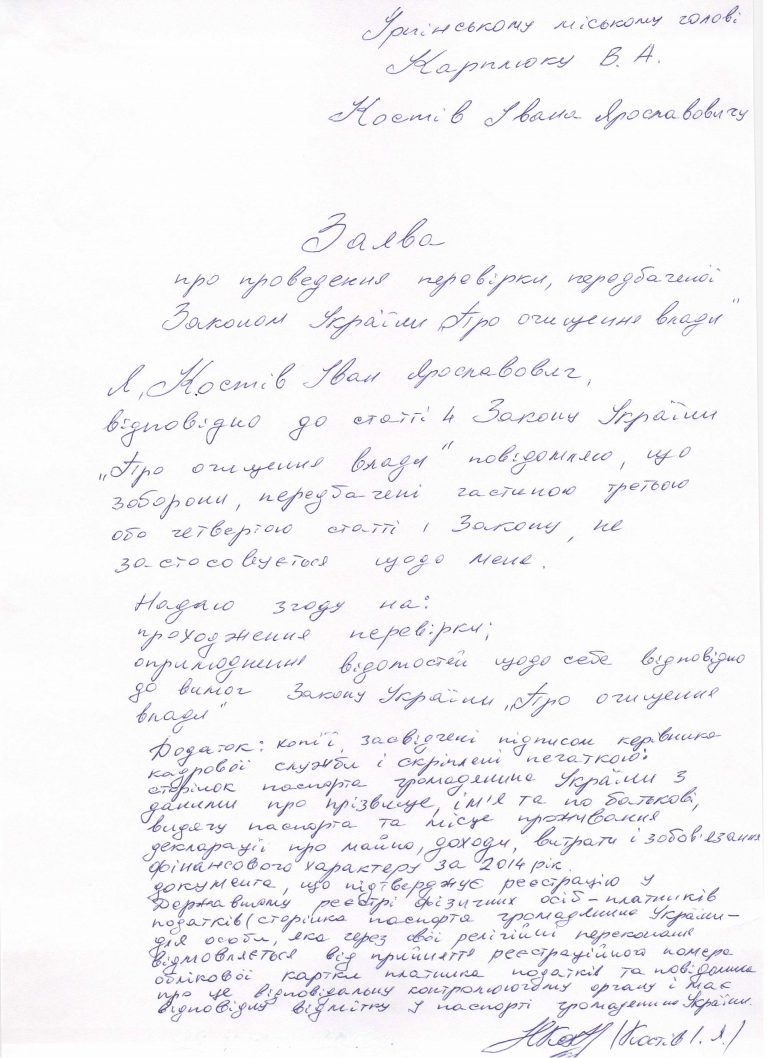 Ірпінському міському голові
Карплюку В. А.
Костів Івана Ярославовичу
Заява
про проведення перевірки, передбаченої
Законом України „Про очищення влади"
Я, Костів Іван Ярославович,
відповідно до статті 4 Закону України
„Про очищення влади" повідомляю, що
заборони, передбачені частиною третьою
або четвертою статті 1 Закону, не
застосовується щодо мене.
Надаю згоду на:
проходження перевірки;
оприлюднення відомостей щодо себе відповідно
до вимог Закону України „Про очищення
влади"
Додаток: копії, засвідчені підписом керівника
кадрової служби і скріплені печаткою:
сторінок паспорта громадянина України з
даними про прізвище, ім'я та по батькові,
видачу паспорта та місце проживання
декларації про майно, доходи, витрати і зобов'язання
фінансового характеру за 2014 рік.
документа, що підтверджує реєстрацію у
Державному реєстрі фізичних осіб-платників
податків (сторінка паспорта громадянина України-
для особи, яка через свої релігійні переконання
відмовляється від прийняття реєстраційного номера
облікової картки платника податків та повідомила
про це відповідальну контролюючому органу і має
відповідну відмітку у паспорті громадянина України.
(Костів І. Я.)